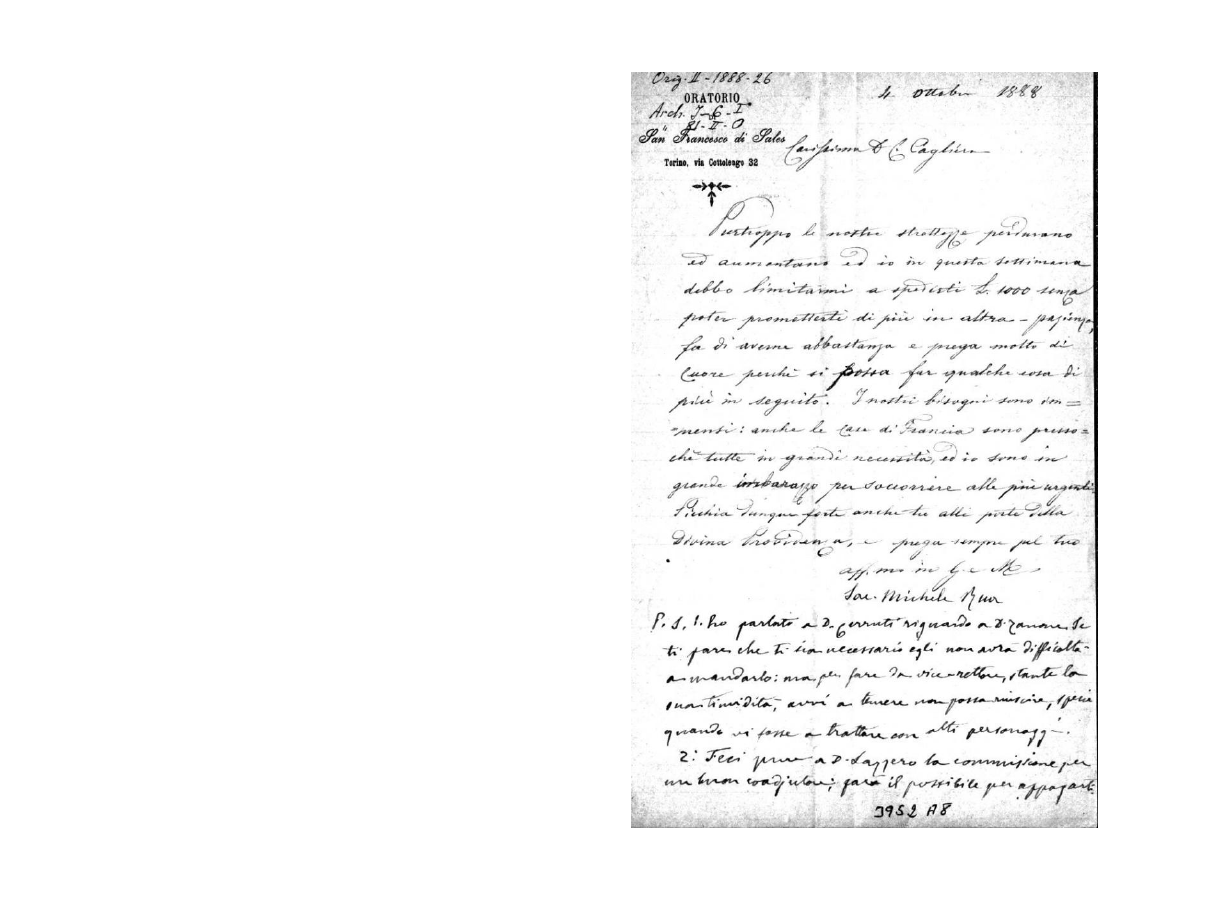 Orig. II - 1888 - 26
4 ottobre 1888
ORATORIO
Arch. J-6-I
81-II-0
San Francesco di Sales
Torino, via Cottolengo 32
Carissimo D. C. Cagliero
Purtroppo le nostre strettezze perdurano
ed aumentano ed io in questa settimana
debbo limitarmi a spedirti L. 1000 senza
poter prometterti di più in altra - pazienza,
fa di averne abbastanza e prega molto di
cuore perchè si possa far qualche cosa di
più in seguito. I nostri bisogni sono im=
=mensi: anche le case di Francia sono presso=
chè tutte in grande necessità, ed io sono in
grande imbarazzo per soccorrere alle più urgenti.
Picchia dunque forte anche tu alle porte della
Divina Provvidenza, e prega sempre pel tuo
aff.mo in G. e M.
Sac. Michele Rua
P. S. 1. Ho parlato a D. Cerruti riguardo a D. Zanone. Se
ti pare che ti sia necessario egli non avrà difficoltà
a mandarlo: ma per fare da vice-rettore, stante la
sua timidità, avvi a temere non possa riuscire, specie
quando vi fosse a trattare con alti personaggi.
2.° Feci pure a D. Lazzero la commissione per
un buon coadjutore; farà il possibile per appagarti.
3952 A8